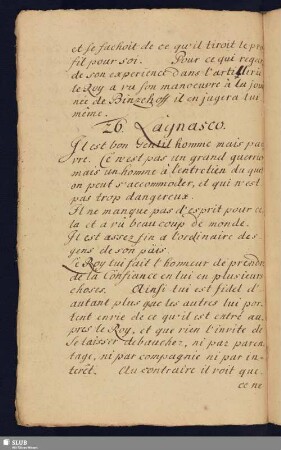 et se fachoit de ce qu'il tiroit le pro
fil pour soi. Pour ce qui regar
de son experience dans l'artillerie
le Roy a vu son manoeuvre à la jour
née de Binzehoff il en jugera lui
même.
26. Lagnasco.
Il est bon Gentil homme mais pau
vre. Ce n'est pas un grand guerrier
mais un homme à l'entretien du quel
on peut s'accommoder, et qui n'est
pas trop dangereux.
Il ne manque pas d'esprit pour ce
la et a vû beaucoup de monde.
Il est assez fin a l'ordinaire des
gens de son païs
Le Roy lui fait l'honneur de prendre
de la Confiance en lui en plusieurs
choses. Ainsi lui est fidel d'
autant plus que les autres lui por
tent envie de ce qu'il est entré au
pres le Roy, et que rien l'invite de
se laisser debaucher, ni par paren
tage, ni par compagnie ni par in
terêt. Au contraire il voit que
ce ne
SLUB